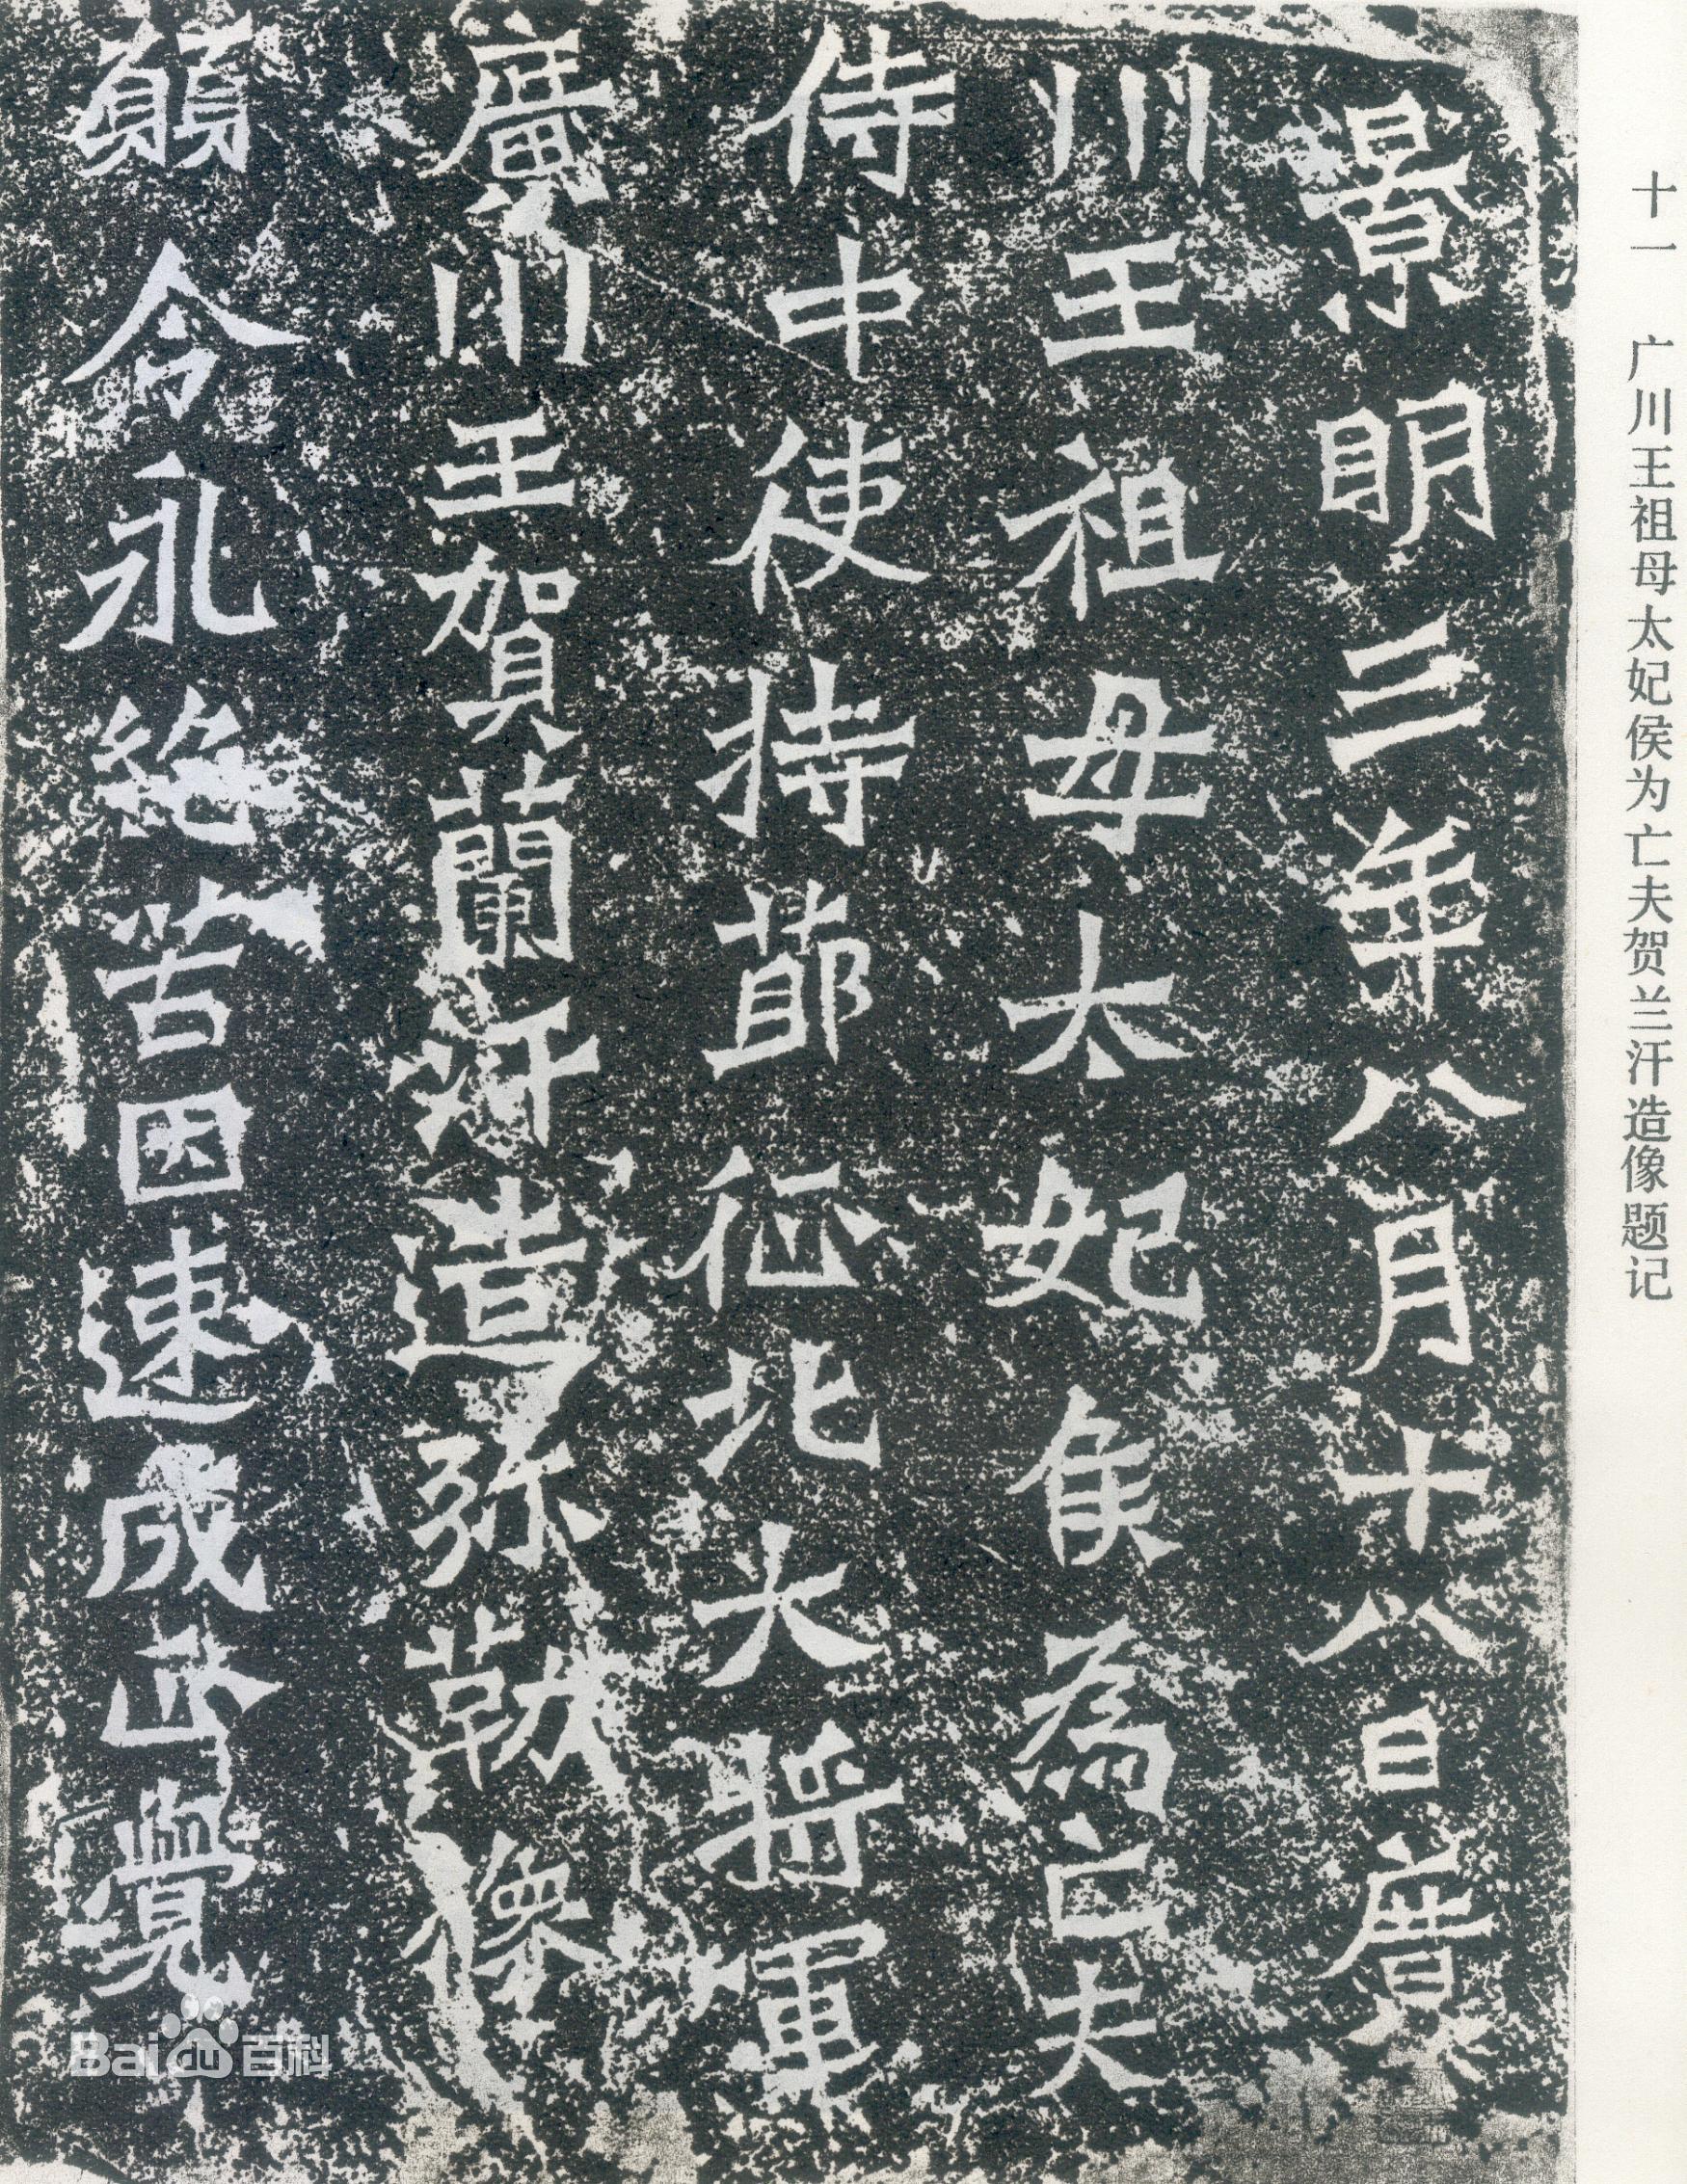 十一 广川王祖母太妃侯为亡夫贺兰汗造像题记
景明三年八月十八日廣
川王祖母太妃侯為亡夫
侍中使持節征北大將軍
廣川王賀蘭汗造弥勒像
願令永絕苦因速成正覺
Bai百科